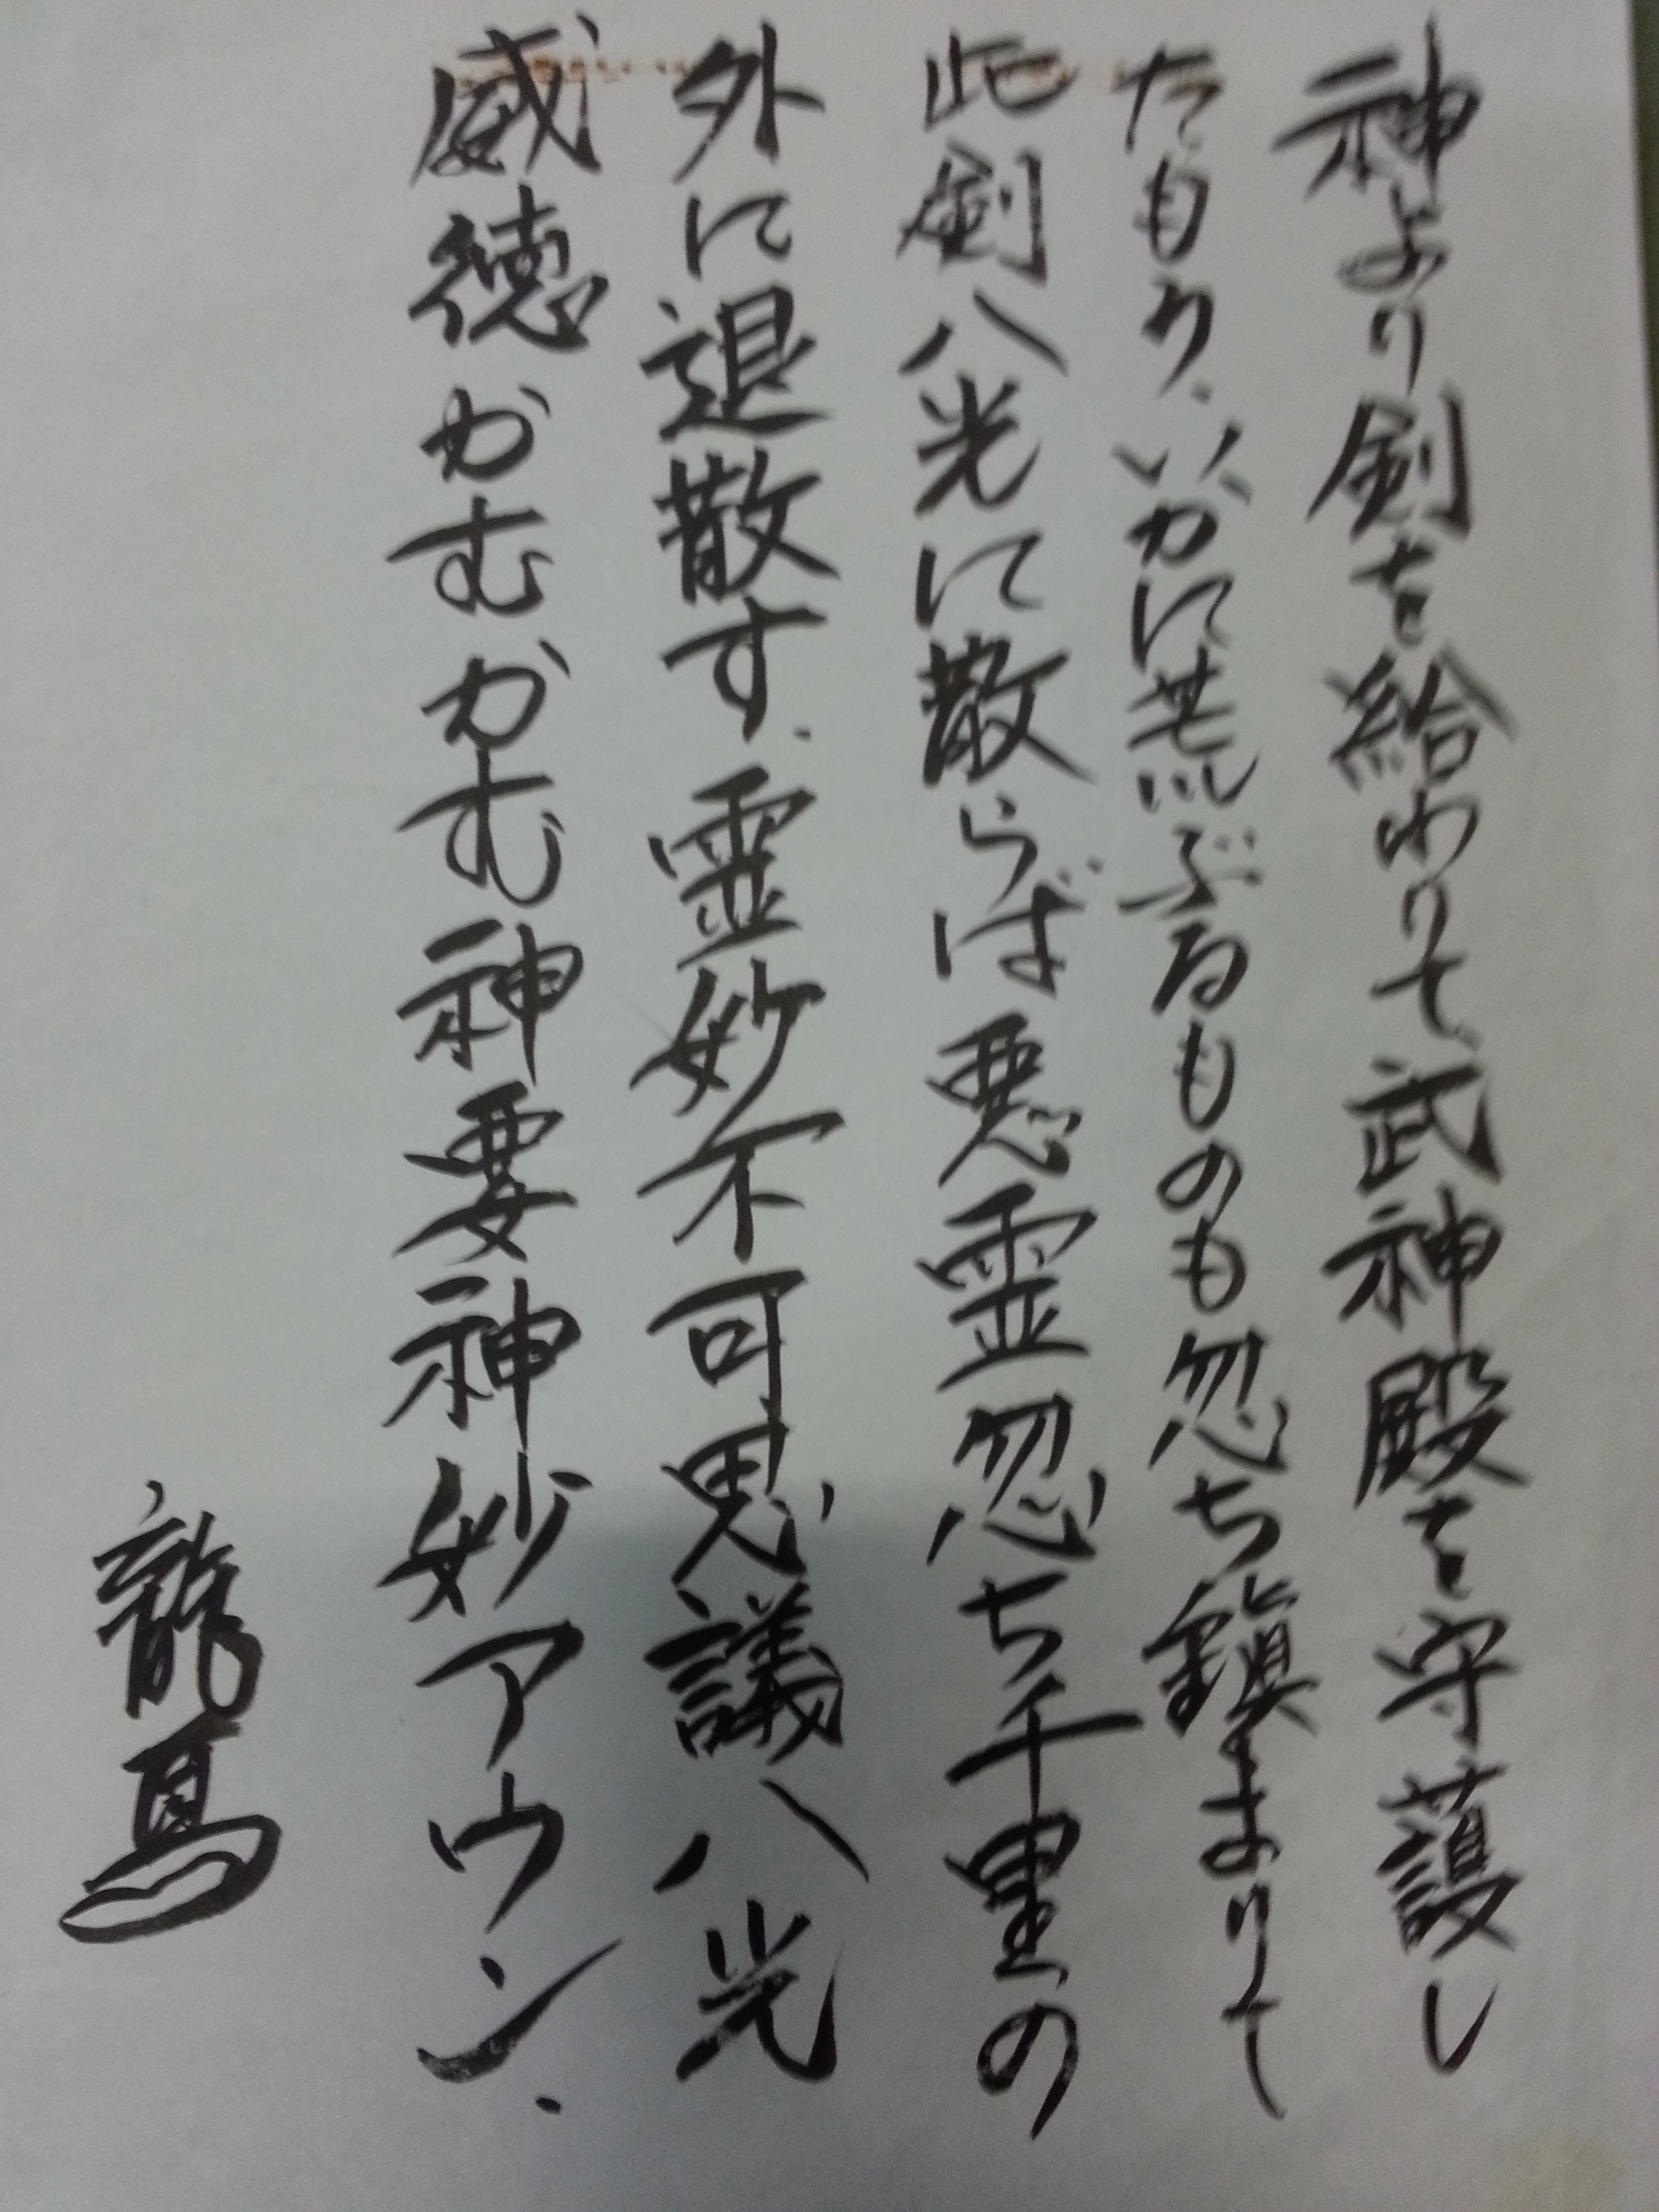 神より剣を給わりて武神殿を守護し
たもう.いかに荒ぶるものも忽ち鎮まりて
此剣八光に散らば悪霊忽ち千里の
外に退散す.霊妙不可思議八光
威徳かむかむ神要神妙アウン.
龍馬